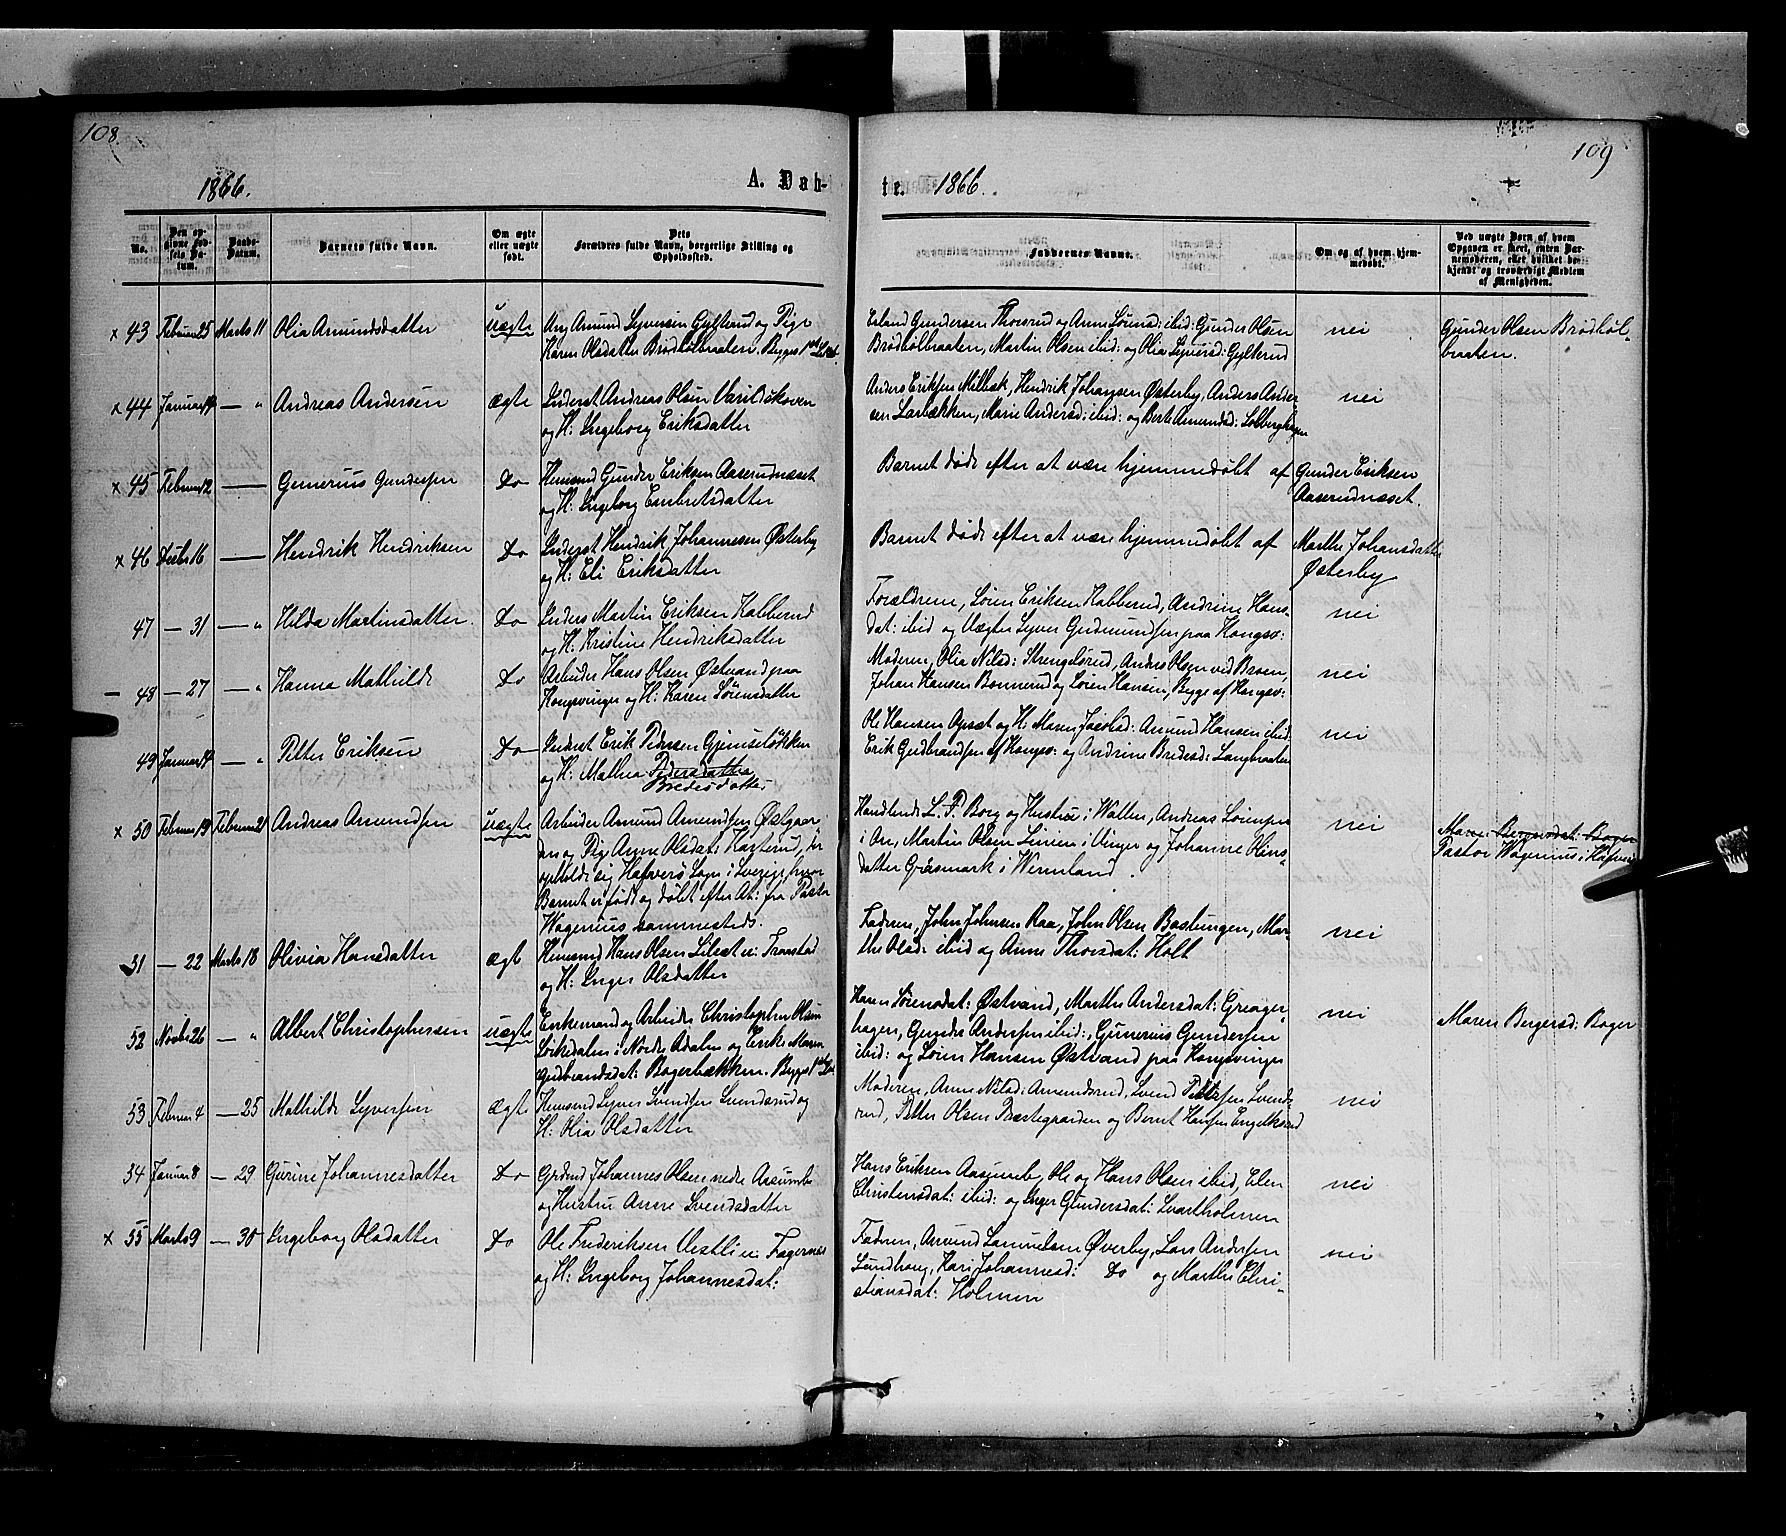 108.
109
1866.
A. Døb-
te. 1866.
No.
Den op-
givne Fød-
sels Da-
tum.
Daabs-
Datum.
Barnets fulde Navn.
Om ægte
eller uægte
født.
Dets
Forældres fulde Navn, borgerlige Stilling og
Opholdssted.
Faddernes Navne.
Om og af hvem hjem-
medøbt.
Ved uægte Børn af hvem
Opgaven er skeet, enten Bar-
nemoderen, eller hvilket be-
kjendt og troværdigt Medlem
af Menigheden.
x 43 Februar 25 Marts 11 Olia Amundsdatter uægte Ung Amund Syversen Gylterud og Pige
Karen Olsdatter Brødbølbraaten. Begges 1ste Leiermaal.
Erland Gundersen Thorsrud og Anne Sørensd: ibid: Gunder Olsen
Brødbølbraaten, Martin Olsen ibid: og Olia Syversd: Gylterud
nei
Gunder Olsen Brødbøl-
braaten.
x 44 Januar 14 — " Andreas Andersen ægte Inderst Andreas Olsen Varildskoven
og H: Ingeborg Eriksdatter
Anders Eriksen Milbæk, Hendrik Johansen Østerby, Anders Ander-
sen Larbækken, Marie Andersd: ibid: og Berte Amundsd: Solberghagen
nei
x 45 Februar 12 — Gunerius Gundersen Do Huusmd Gunder Eriksen Aaserudnæsset
og H: Ingeborg Embretsdatter
Barnet døde efter at være hjemmedøbt af Gunder Eriksen
Aaserudnæsset.
x 46 Decbr 16 — Hendrik Hendriksen Do Inderst Hendrik Johannesen Østerby
og H: Eli Eriksdatter
Barnet døde efter at være hjemmedøbt af Marthe Johansdatter
Østerby
47 — 31 — " Hilda Martinsdatter. Do Inders Martin Eriksen Kabberud
og H. Kristine Hendriksdatter
Forældrene, Søren Eriksen Kabberud, Andrine Hans-
dat: ibid og Vægter Syver Gudmundsen paa Kongsv:
nei
— 48 — 27 — " Hanna Mathilde Do Arbeider Hans Olsen Østvand paa
Kongsvinger og H: Karen Sørensdatter
Moderen, Olia Nilsd: Strengelsrud, Anders Olsen ved Broen,
Johan Hansen Bonnerud og Søren Hansen, Begge af Kongsv:
nei
49 Januar 14 — " Petter Eriksen Do Inderst Erik Pedersen Gjemseløkken
og H: Mathea Pedersdatter
Bredesdatter
Ole Hansen Opset og H: Maren Jacobsd: Amund Hansen ibid:
Erik Gudbrandsen af Kongsv: og Andrine Bredesd: Langbraaten
nei
x 50 Februar 19 Februar 21 Andreas Amundsen uægte Arbeider Amund Amundsen Østgaar-
den og Pige Anne Olsdat: Karterud, der
opholdt sig Hafverö Sogn i Sverige hvor
Barnet er født og døbt efter At: fra Pastor
Wagenius sammesteds.
Handlende L. P. Borg og Hustrue i Wallen, Andreas Sörensen
i Aar, Martin Olsen Linien i Vinger og Johanne Olins-
datter Gräsmark i Wermland.
nei
Maren Bergersdat: Boger
Pastor Wagenius i Hafverö
51 — 22 Marts 18 Olivia Hansdatter ægt Huusmd Hans Olsen Lilset u: Tronstad
og H: Inger Olsdatter
Faderen, John Johnsen Raa, John Olsen Bastungen, Mar-
the Olsd: ibid og Anne Thorsdat: Holt
nei
52 Novbr 26 — " Albert Christophersen uægte Enkemand og Arbeider Christopher Olsen
Sørkedalen i Nordre Adalen og Enke Maren
Gudbrandsdat: Bogerbækken. Begges 1ste Lei.
Karen Sørensdat: Østvand, Marthe Andersdat: Greager-
hagen, Gunder Andersen ibid:, Gunerius Gundersen
ibid: og Søren Hansen Østvand paa Kongsvinger
nei
Maren Bergersd: Boger
53 Februar 4 — 25 Mathilde Syversen ægte Huusmd Syver Svendsen Svendsrud og
H: Olia Olsdatter
Moderen, Anne Nilsd: Amundsrud, Svend Pettersen Svends-
rud, Petter Olsen Præstegaarden og Bernt Hansen Engelksrud
nei
54 Januar 8 — 29 Gurine Johannesdatter Do Grdmd Johannes Olsen nedre Aasumb
og Hustru Anne Svendsdatter
Hans Eriksen Aasumby, Ole og Hans Olsen ibid, Elen
Christensdat: ibid: og Inger Gundersdat: Svartholmen
nei
x 55 Marts 9 — 30 Ingeborg Olsdatter Do Ole Frederiksen Vestli u: Fagernes
og H: Ingeborg Johannesdat:
Faderen, Amund Samuelsen Øverby, Lars Andersen
Lundhaug, Kari Johannesd: Do og Marthe Chri-
stiansdat: Holmen
nei